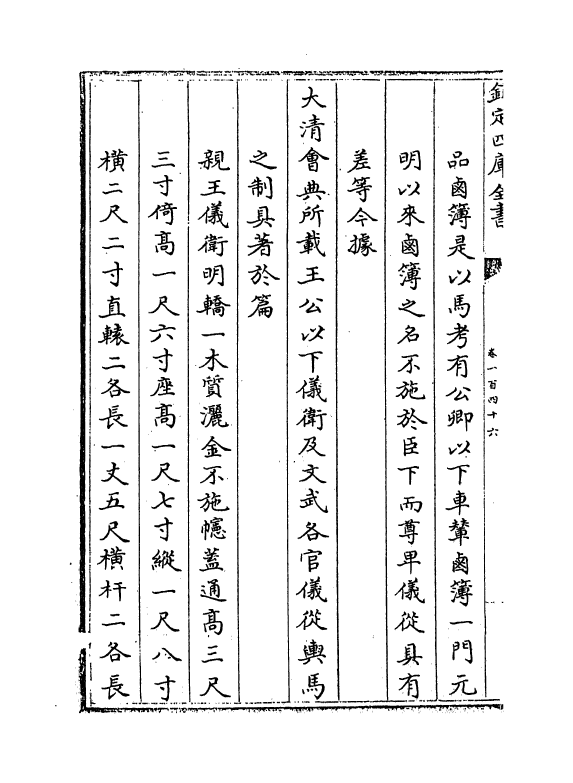 欽定四庫全書
卷一百四十六
品鹵簿是以馬考有公卿以下車輦鹵簿一門元
明以來鹵簿之名不施於臣下而尊卑儀從具有
差等今據
大清會典所載王公以下儀衛及文武各官儀從輿馬
之制具著於篇
親王儀衛明轎一木質灑金不施幰蓋通高三尺
三寸倚高一尺六寸座高一尺七寸縱一尺八寸
橫二尺二寸直轅二各長一丈五尺橫杆二各長